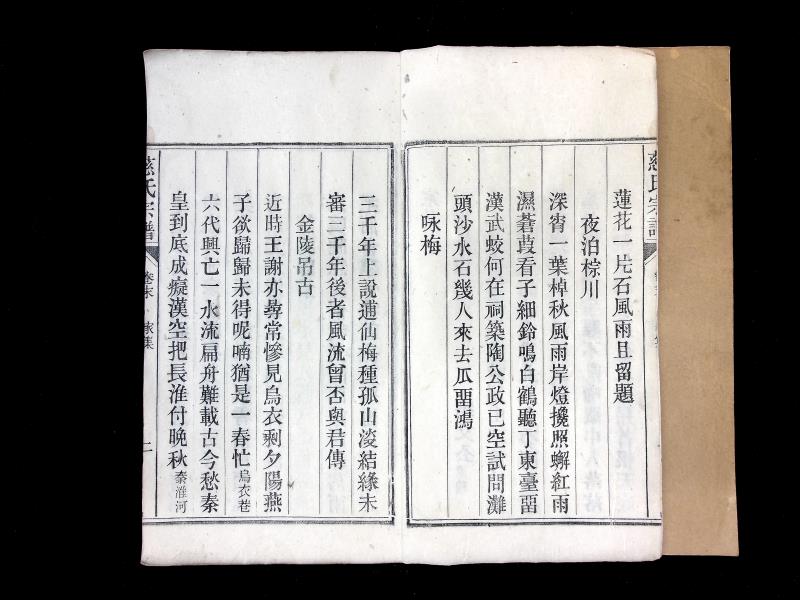 慈氏宗譜
蓮花一片石風雨且留題
夜泊棕川
深宵一葉棹秋風雨岸燈攙照蠏紅雨
濕蒼葭看子細鈴鳴白鶴聽丁東臺畱
漢武蛟何在祠築陶公政已空試問灘
頭沙水石幾人來去瓜畱鴻
咏梅
三千年上說逋仙梅種孤山淡結緣未
審三千年後者風流曾否與君傳
金陵吊古
近時王謝亦尋常慘見烏衣剩夕陽燕
子欲歸歸未得呢喃猶是一春忙烏衣巷
六代興亡一水流扁舟難載古今愁秦
皇到底成癡漢空把長淮付晚秋秦淮河
慈氏宗譜 卷末 二